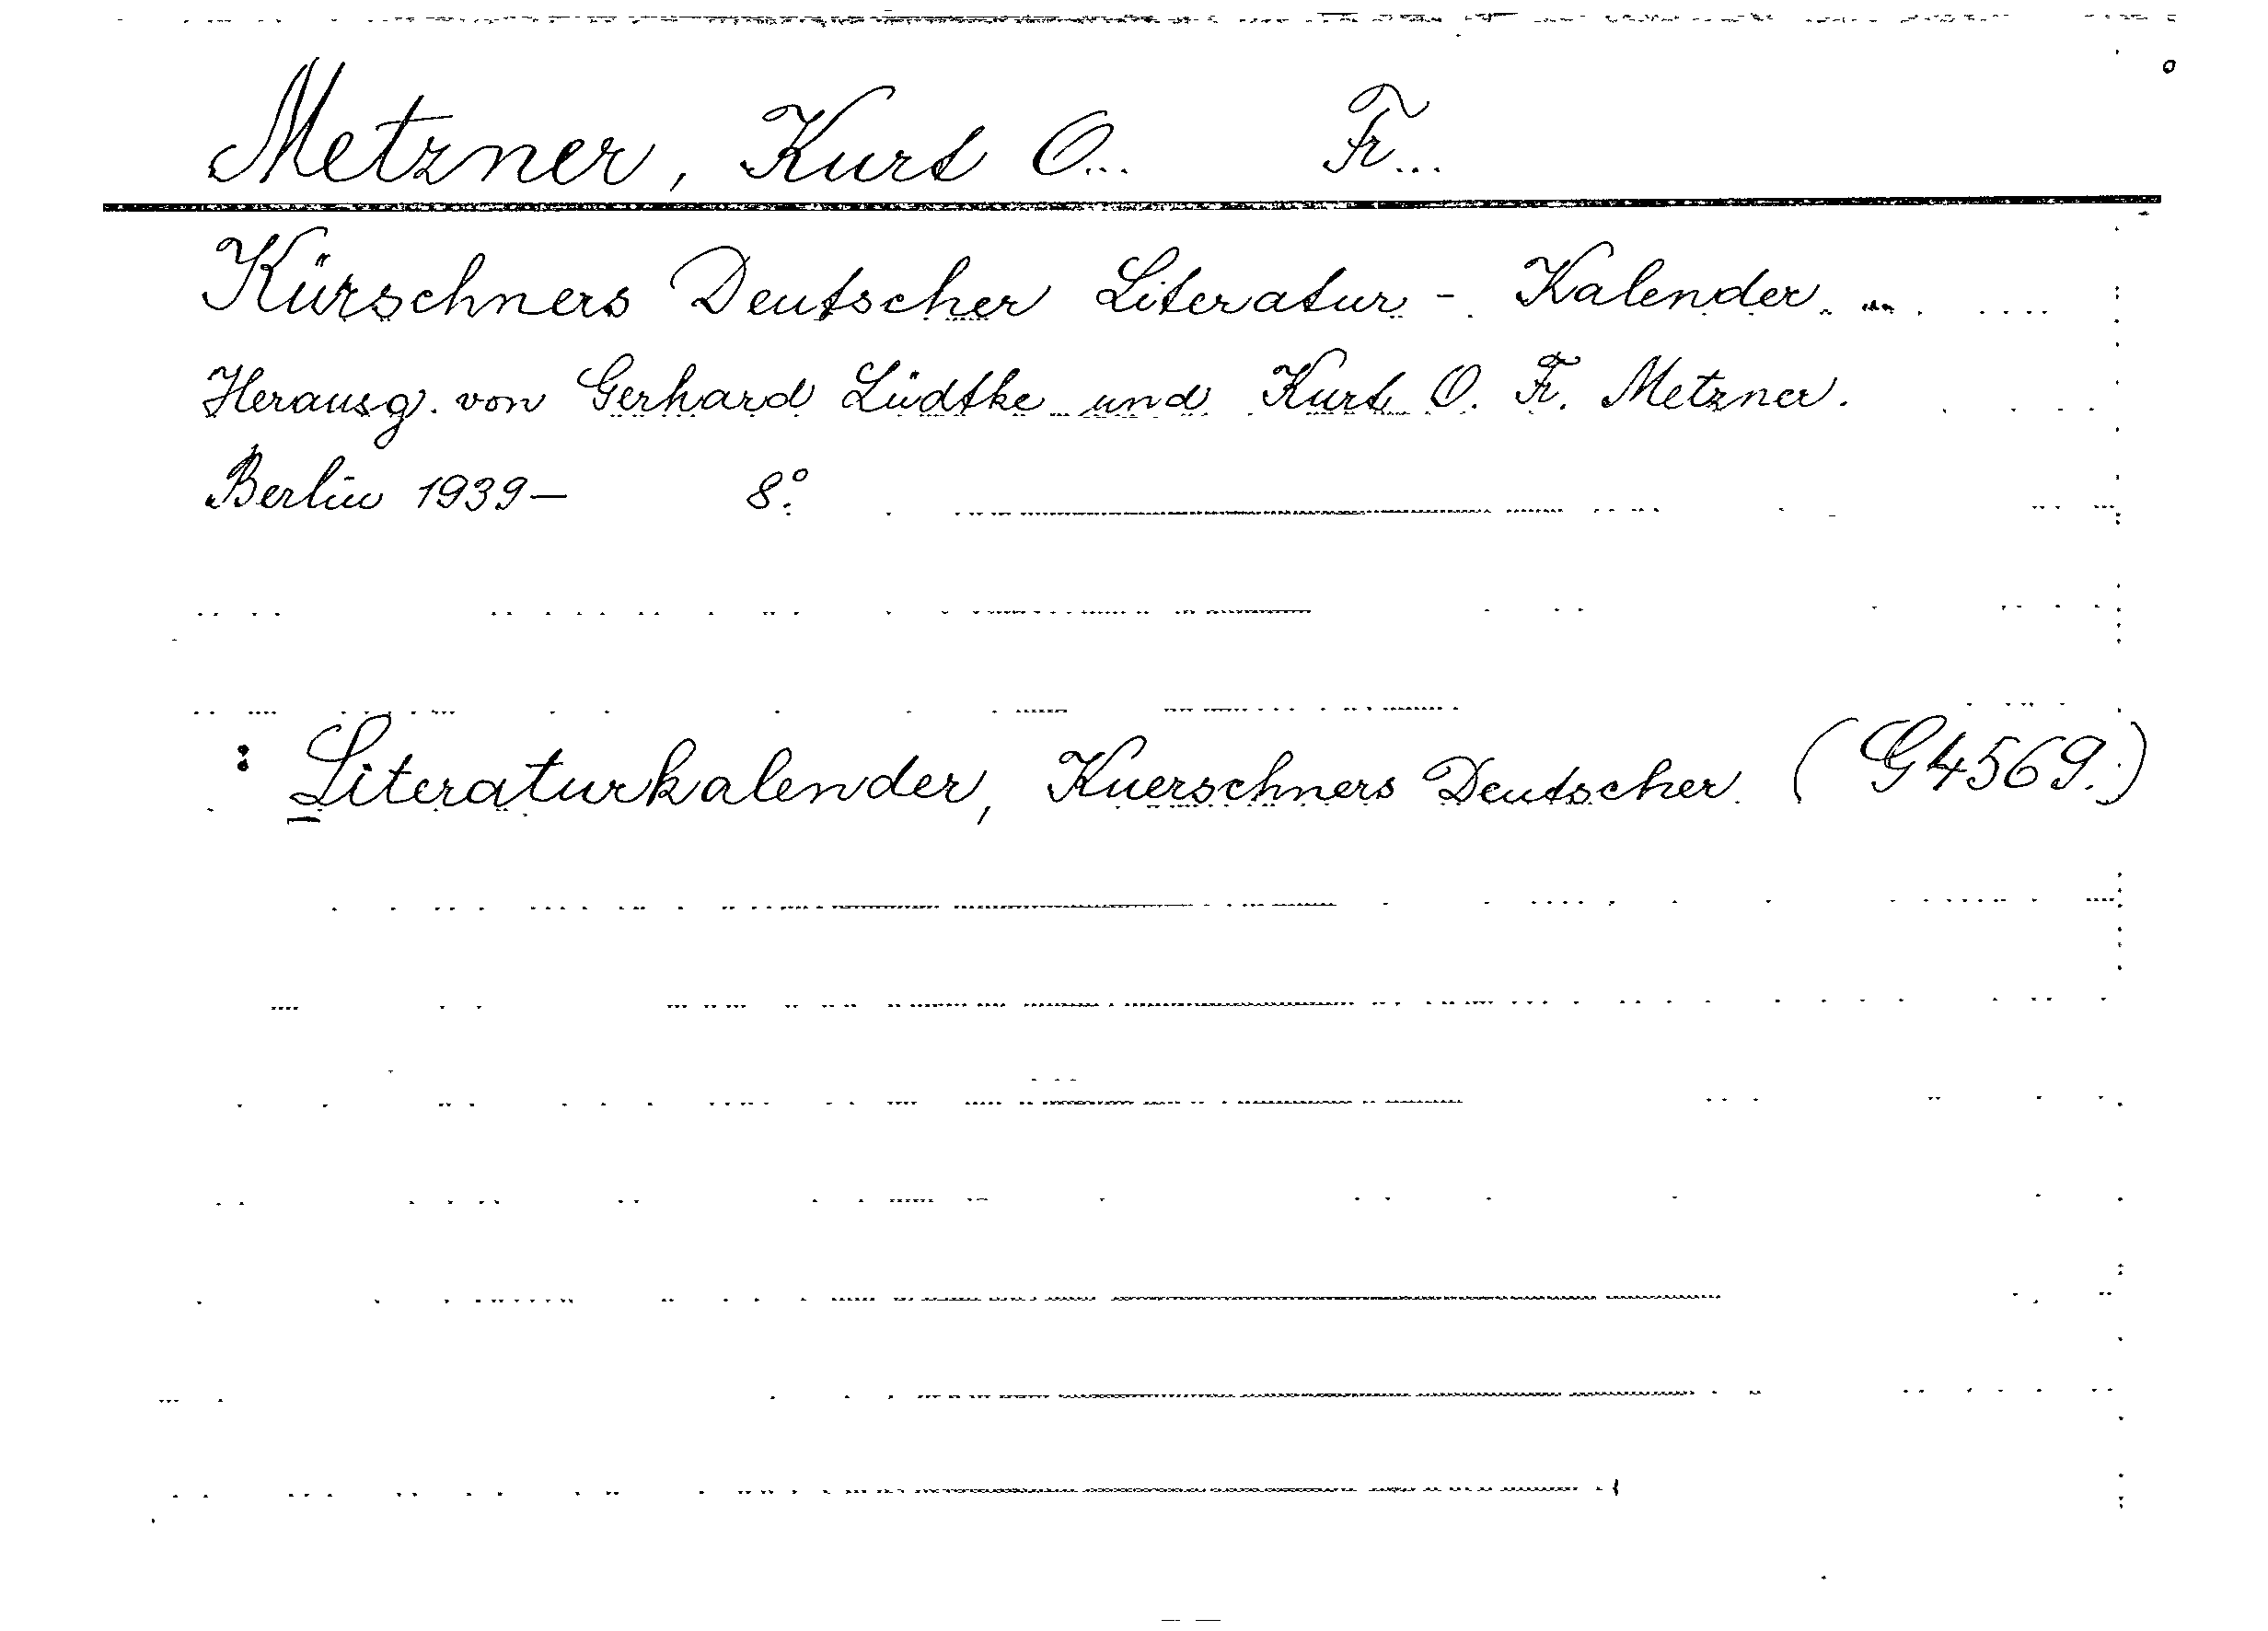 Metzner, Kurt O... Fr...
Kürschners Deutscher Literatur - Kalender. ...
Herausg. von Gerhard Lüdtke und Kurt O. Fr. Metzner.
Berlin 1939— 8°.
: Literaturkalender, Kuerschners Deutscher. (G4569.)